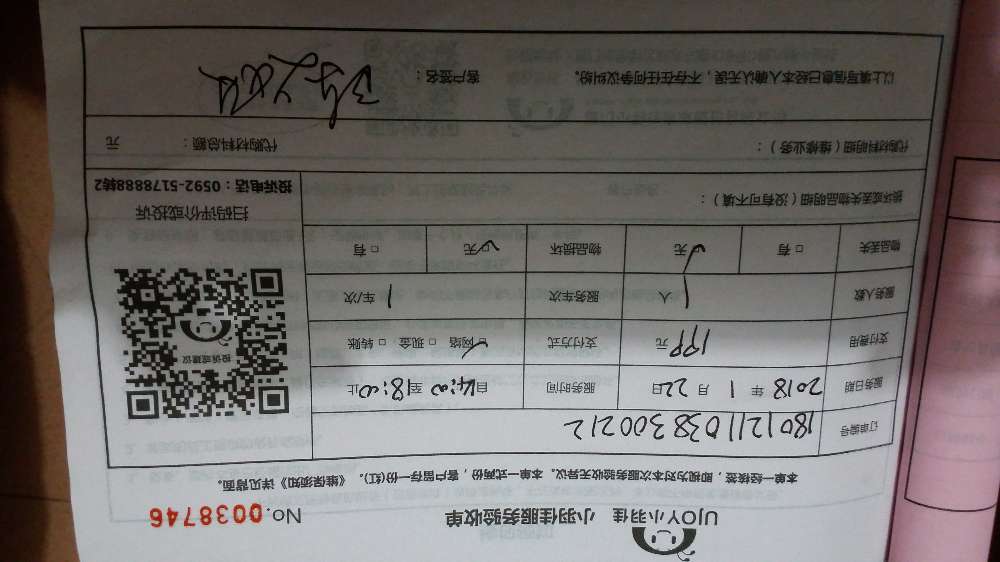 UJOY小羽佳 小羽佳服务验收单 No.0038746
本单一经核签，即视为对本次服务验收无异议。本单一式两份，客户留存一份(红)。《维保须知》详见背面。
订单编号 1801211038300212
服务日期 2018 年 1 月 22 日 服务时间 自 14:00 至 18:00 止
支付费用 199 元 支付方式 网络 □ 现金 □ 转账
服务人数 1 人 服务车次 1 车/次
物品丢失 □ 有 无 物品损坏 无 □ 有
投诉或建议
扫码评价或投诉
投诉电话：0592-5178888转2
损坏或丢失物品明细（没有可不填）：
代购材料明细（维修业务）： 代购材料总额： 元
以上填写信息已经本人确认无误，不存在任何争议纠纷。 客户签名：